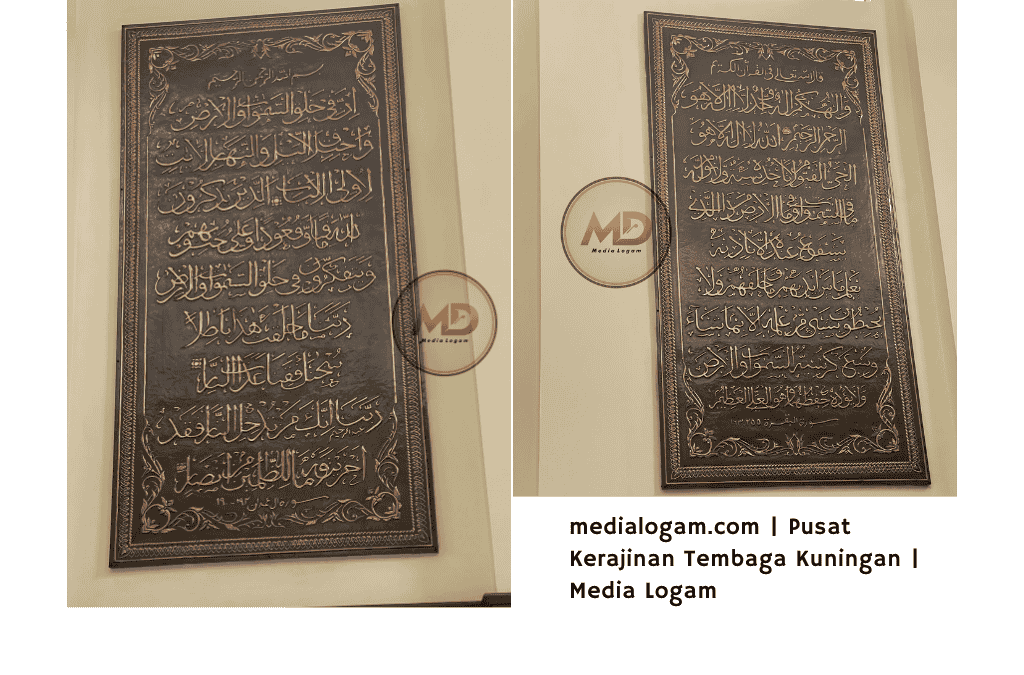 بسم الله الرحمن الرحيم
إن في خلق السموات والأرض
واختلاف الليل والنهار لآيات
لأولي الألباب الذين يذكرون
الله قياما وقعودا وعلى جنوبهم
ويتفكرون في خلق السموات والأرض
ربنا ما خلقت هذا باطلا
سبحنك فقنا عذاب النار
ربنا إنك من تدخل النار فقد
أخزيته وما للظلمين من أنصار
MD
Media Logam
قال الله تعالى في القرآن الكريم
وإلهكم إله واحد لا إله إلا هو
الرحمن الرحيم الله لا إله إلا هو
الحي القيوم لا تأخذه سنة ولا نوم له
ما في السموات وما في الأرض من ذا الذي
يشفع عنده إلا بإذنه
يعلم ما بين أيديهم وما خلفهم ولا
يحيطون بشيء من علمه إلا بما شاء
وسع كرسيه السموات والأرض
ولا يؤده حفظهما وهو العلي العظيم
سورة البقرة ١٦٣ ٢٥٥
MD
Media Logam
medialogam.com | Pusat
Kerajinan Tembaga Kuningan |
Media Logam